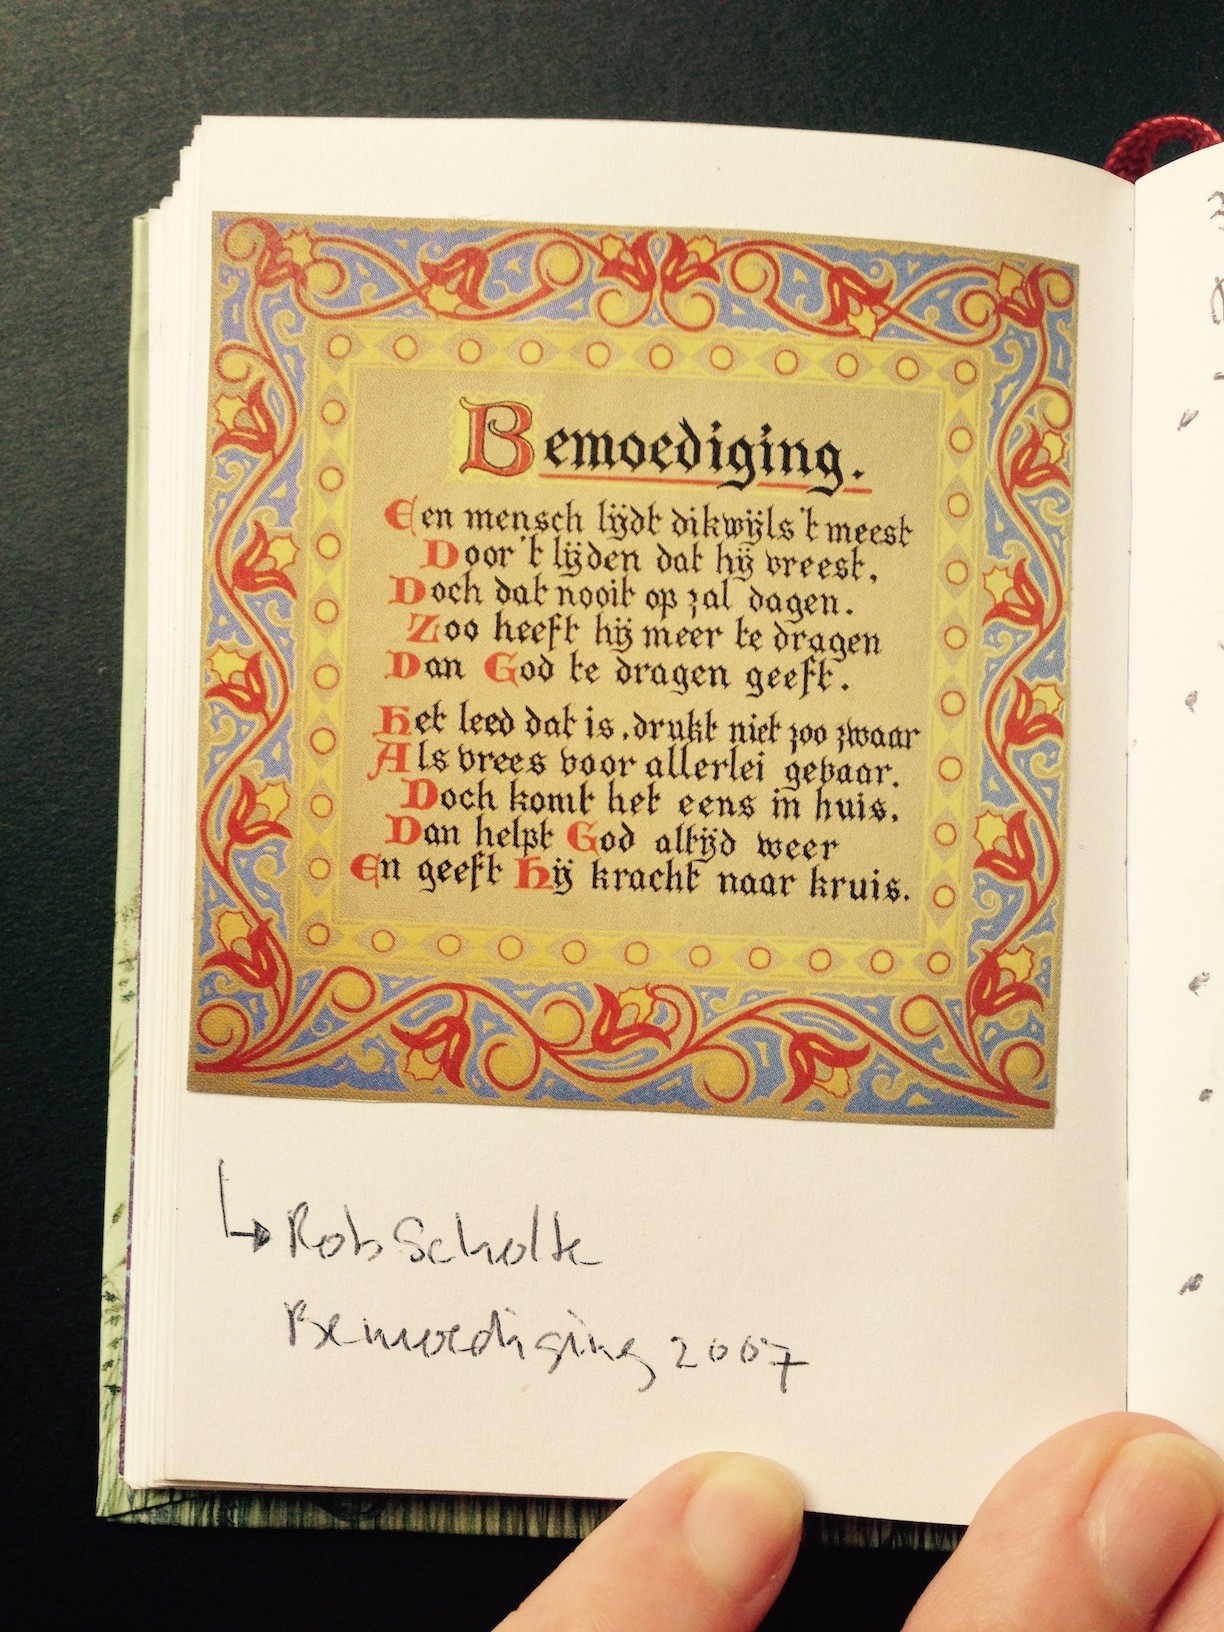 Bemoediging.
Een mensch lijdt dikwijls 't meest
Door 't lijden dat hij vreest,
Doch dat nooit op zal dagen.
Zoo heeft hij meer te dragen
Dan God te dragen geeft.
Het leed dat is, drukt niet zoo zwaar
Als vrees voor allerlei gevaar.
Doch komt het eens in huis,
Dan helpt God altijd weer
En geeft Hij kracht naar kruis.
Rob Scholte
Bemoediging 2007